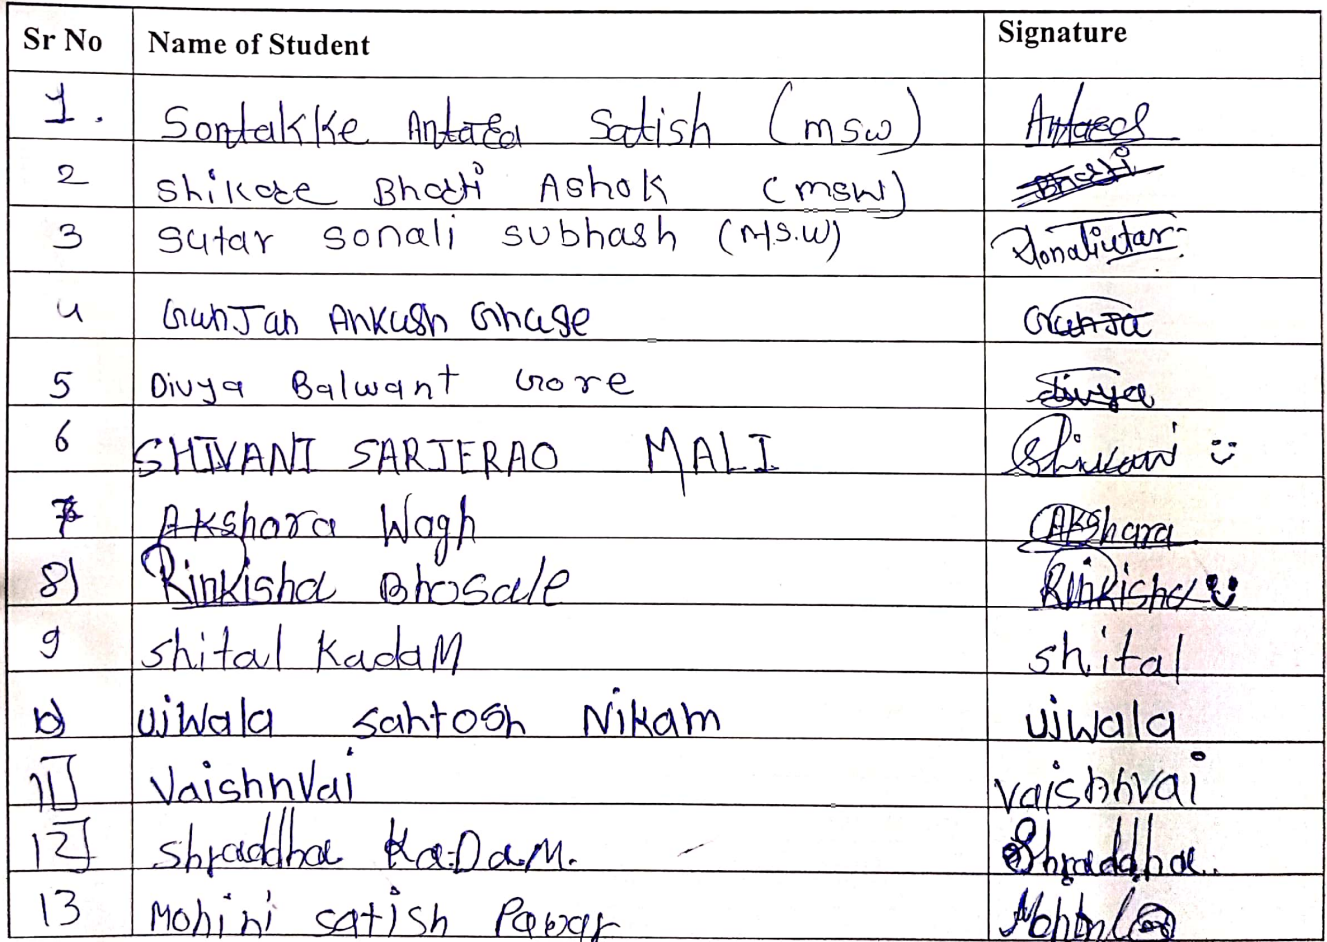 Sr No Name of Student Signature
1. Sontakke Satish (msw)
2 Shikare Ashok (msw)
3 Sutar Sonali Subhash (M.S.W) Sonalisutar
4 GunJan Ankush Ghuge GunJa
5 Divya Balwant Gore divya
6 SHIVANI SARJERAO MALI Shivani
7 Akshara Wagh Akshara
8) Rinkisha Bhosale Rinkisha
9 Shital KadaM shital
10) ujWala Santosh Nikam ujwala
11] VaishnVai vaishnvai
12] Shraddha KaDaM. Shraddha..
13 Mohini Satish Pawar Mohini